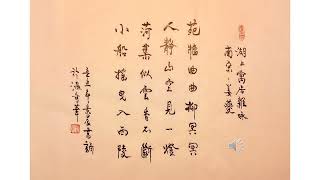 湖上寓居雜咏
南宋·姜夔
苑牆曲曲柳冥冥
人靜山空見一燈
荷葉似雲香不斷
小船搖曳入西陵